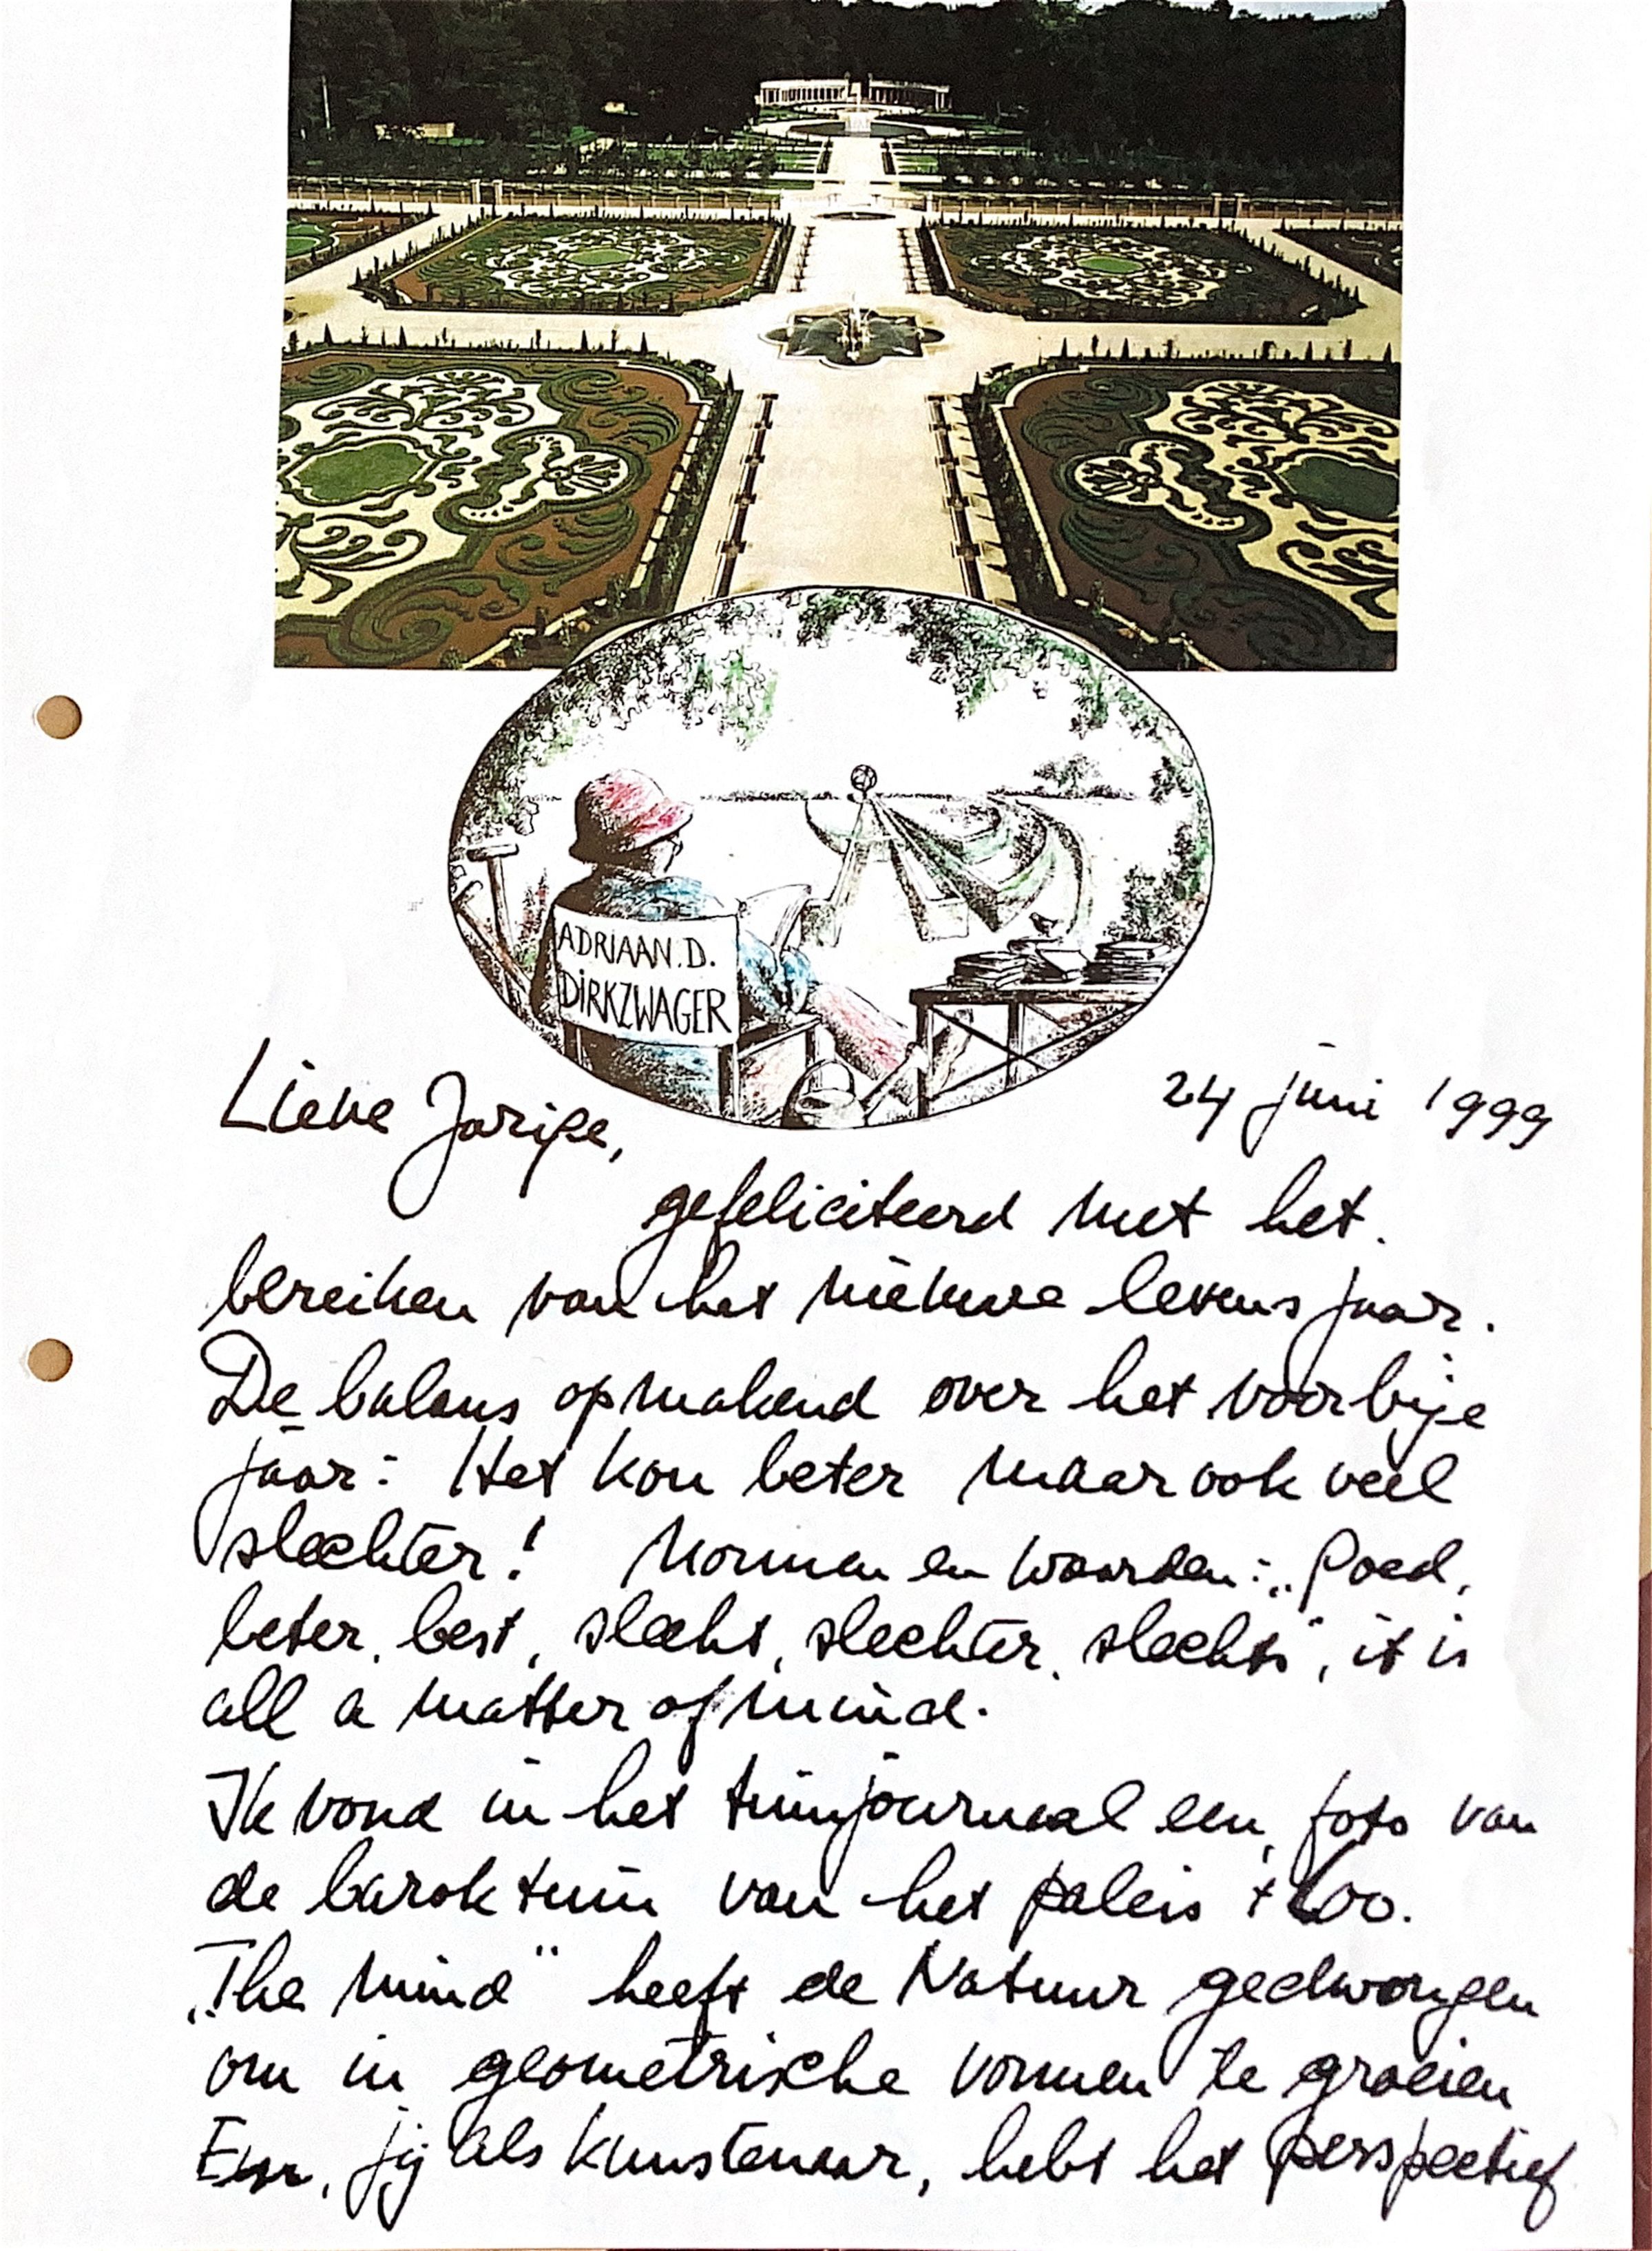 ADRIAAN.D.
DIRKZWAGER
Lieve
24 juni 1999
gefeliciteerd met het.
bereiken van het nieuwe levensjaar.
De balans opmakend over het voorbije
jaar: Het kon beter maar ook veel
slechter! Normen en waarden: „Goed,
beter, best, slecht, slechter, slechts", it is
all a matter of mind.
Ik vond in het tuinjournaal een foto van
de baroktuin van het paleis 't Loo.
„The mind" heeft de Natuur gedwongen
om in geometrische vormen te groeien
En, jij als kunstenaar, hebt het perspectief